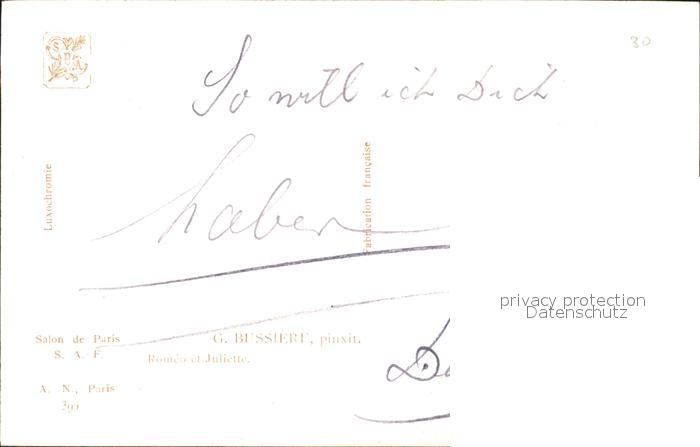 30
So will ich Dich
haben
Luxochromie
Fabrication française
privacy protection
Datenschutz
Salon de Paris
S. A. F.
G. BUSSIÈRE, pinxit.
Roméo et Juliette.
A. N., Paris